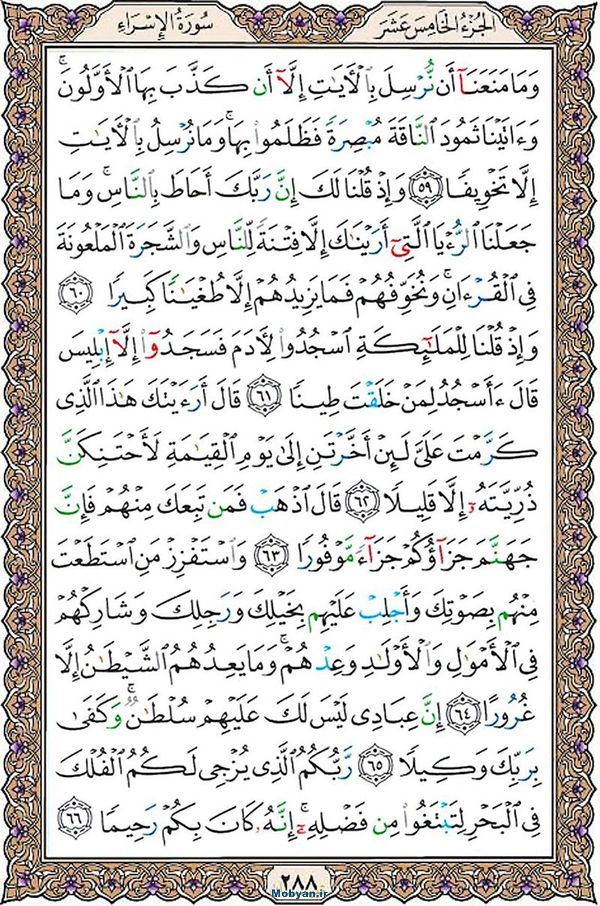 الجزء الخامس عشر
سورة الإسراء
وَمَا مَنَعَنَآ أَن نُّرْسِلَ بِٱلْأَيَـٰتِ إِلَّآ أَن كَذَّبَ بِهَا ٱلْأَوَّلُونَ ۚ
وَءَاتَيْنَا ثَمُودَ ٱلنَّاقَةَ مُبْصِرَةً فَظَلَمُوا۟ بِهَا ۚ وَمَا نُرْسِلُ بِٱلْأَيَـٰتِ
إِلَّا تَخْوِيفًا ﴿٥٩﴾ وَإِذْ قُلْنَا لَكَ إِنَّ رَبَّكَ أَحَاطَ بِٱلنَّاسِ ۚ وَمَا
جَعَلْنَا ٱلرُّءْيَا ٱلَّتِىٓ أَرَيْنَـٰكَ إِلَّا فِتْنَةً لِّلنَّاسِ وَٱلشَّجَرَةَ ٱلْمَلْعُونَةَ
فِى ٱلْقُرْءَانِ ۚ وَنُخَوِّفُهُمْ فَمَا يَزِيدُهُمْ إِلَّا طُغْيَـٰنًا كَبِيرًا ﴿٦٠﴾
وَإِذْ قُلْنَا لِلْمَلَـٰٓئِكَةِ ٱسْجُدُوا۟ لِأَدَمَ فَسَجَدُوٓا۟ إِلَّآ إِبْلِيسَ
قَالَ ءَأَسْجُدُ لِمَنْ خَلَقْتَ طِينًا ﴿٦١﴾ قَالَ أَرَءَيْتَكَ هَـٰذَا ٱلَّذِى
كَرَّمْتَ عَلَىَّ لَئِنْ أَخَّرْتَنِ إِلَىٰ يَوْمِ ٱلْقِيَـٰمَةِ لَأَحْتَنِكَنَّ
ذُرِّيَّتَهُۥٓ إِلَّا قَلِيلًا ﴿٦٢﴾ قَالَ ٱذْهَبْ فَمَن تَبِعَكَ مِنْهُمْ فَإِنَّ
جَهَنَّمَ جَزَآؤُكُمْ جَزَآءً مَّوْفُورًا ﴿٦٣﴾ وَٱسْتَفْزِزْ مَنِ ٱسْتَطَعْتَ
مِنْهُم بِصَوْتِكَ وَأَجْلِبْ عَلَيْهِم بِخَيْلِكَ وَرَجِلِكَ وَشَارِكْهُمْ
فِى ٱلْأَمْوَٰلِ وَٱلْأَوْلَـٰدِ وَعِدْهُمْ ۚ وَمَا يَعِدُهُمُ ٱلشَّيْطَـٰنُ إِلَّا
غُرُورًا ﴿٦٤﴾ إِنَّ عِبَادِى لَيْسَ لَكَ عَلَيْهِمْ سُلْطَـٰنٌ ۚ وَكَفَىٰ
بِرَبِّكَ وَكِيلًا ﴿٦٥﴾ رَّبُّكُمُ ٱلَّذِى يُزْجِى لَكُمُ ٱلْفُلْكَ
فِى ٱلْبَحْرِ لِتَبْتَغُوا۟ مِن فَضْلِهِۦٓ ۚ إِنَّهُۥ كَانَ بِكُمْ رَحِيمًا ﴿٦٦﴾
٢٨٨
Mobyan.ir